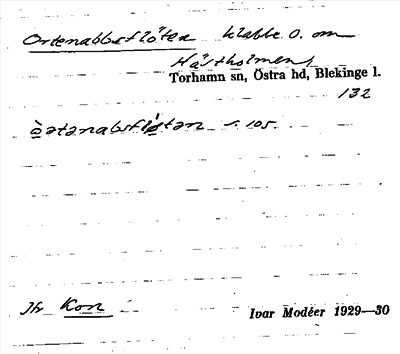 Ortenabbsflöten klabbe O. om
Hästholmen,
Torhamn sn, Östra hd, Blekinge l.
132
s. 105.
Jfr Kon
Ivar Modéer 1929—30